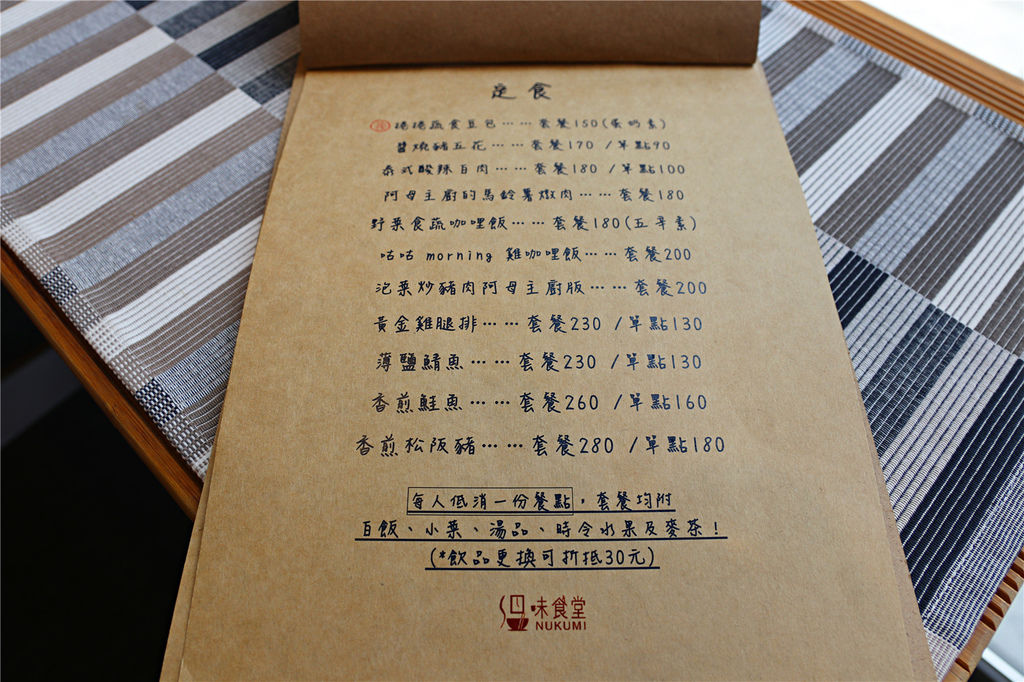 定食
捲捲蔬食豆包……套餐150(蛋奶素)
醬燒豬五花……套餐170 /單點90
泰式酸辣白肉……套餐180 /單點100
阿母主廚的馬鈴薯燉肉……套餐180
野菜食蔬咖哩飯……套餐180(五辛素)
咕咕 morning 雞咖哩飯……套餐200
泡菜炒豬肉阿母主廚版……套餐200
黃金雞腿排……套餐230 /單點130
薄鹽鯖魚……套餐230 /單點130
香煎鮭魚……套餐260 /單點160
香煎松阪豬……套餐280 /單點180
每人低消一份餐點，套餐均附
白飯、小菜、湯品、時令水果及麥茶！
(*飲品更換可折抵30元)
味食堂
NUKUMI